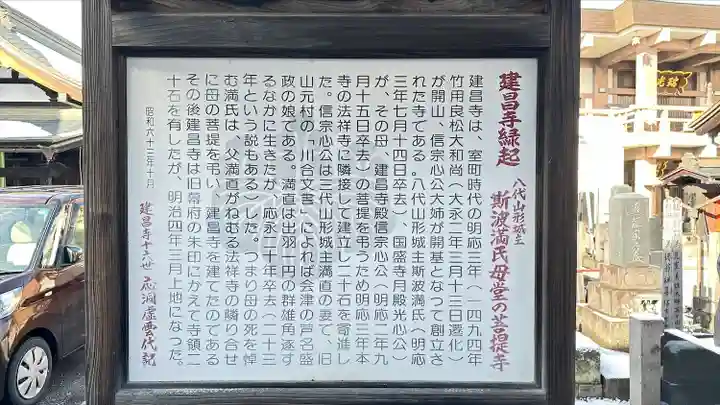 建昌寺縁起
八代山形城主
斯波満氏母堂の菩提寺
建昌寺は、室町時代の明応三年（一四九四年
竹用良松大和尚（大永二年三月十三日遷化）
が開山、信宗心公大姉が開基となって創立さ
れた寺である。八代山形城主斯波満氏（明応
三年七月十四日卒去）国盛寺月殿光心公）
が、その母、建昌寺殿信宗心公（明応二年九
月十五日卒去）の菩提を弔うため明応三年本
寺の法祥寺に隣接して建立し二十石を寄進し
た。信宗心公は三代山形城主満直の妻で、旧
山元村の「川合文書」によれば会津の芦名盛
政の娘である。満直は出羽一円の群雄角逐す
るなかに生きたが、応永三十年卒去（二十三
年という説もある）した。つまり母の死を悼
む満氏は、父満直がねむる法祥寺の隣り合せ
に母の菩提を弔い、建昌寺を建てたのである
その後建昌寺は旧幕府の朱印にかえて寺領二
十石を有したが、明治四年三月上地になった。
昭和六十三年十月
建昌寺十六世 虚雲代記